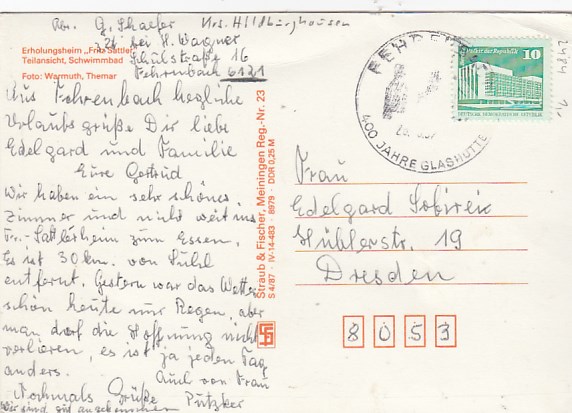 Abs. G. Schaefer Krs. Hildburghausen
z.Zt. bei H. Wagner
Schulstraße 16
Fehrenbach 6121
Erholungsheim „Fritz Sattler"
Teilansicht, Schwimmbad
Foto: Warmuth, Themar
Aus Fehrenbach herzliche
Urlaubsgrüße Dir liebe
Edelgard und Familie
Eure Gertrud
Wir haben ein sehr schönes
Zimmer und nicht weit ins
Fr.-Sattlerheim zum Essen.
Es ist 30 km. von Suhl
entfernt. Gestern war das Wetter
schön heute nur Regen, aber
man darf die Hoffnung nicht
verlieren, es ist ja jeden Tag
anders. Auch von Frau
Nochmals Grüße Pützker
Wir sind gut angekommen
Straub & Fischer, Meiningen Reg.-Nr. 23
S 4/87 · IV-14-483 · 8979 · DDR 0,25 M
400 JAHRE GLASHÜTTE
Palast der Republik
10
DEUTSCHE DEMOKRATISCHE REPUBLIK
Frau
Edelgard
Hüblerstr. 19
Dresden
8053